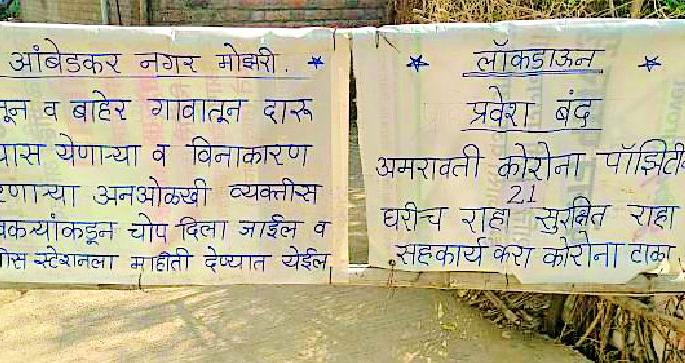 आंबेडकर नगर मोझरी.
व बाहेर गावातून दारू
येणाऱ्या व विनाकारण
अनओळखी व्यक्तीस
चोप दिला जाईल व
स्टेशनला माहीती देण्यात येईल
लॉकडाऊन
प्रवेश बंद
अमरावती कोरोना
21
घरीच राहा सुरक्षित राहा
सहकार्य करा कोरोना टाळा